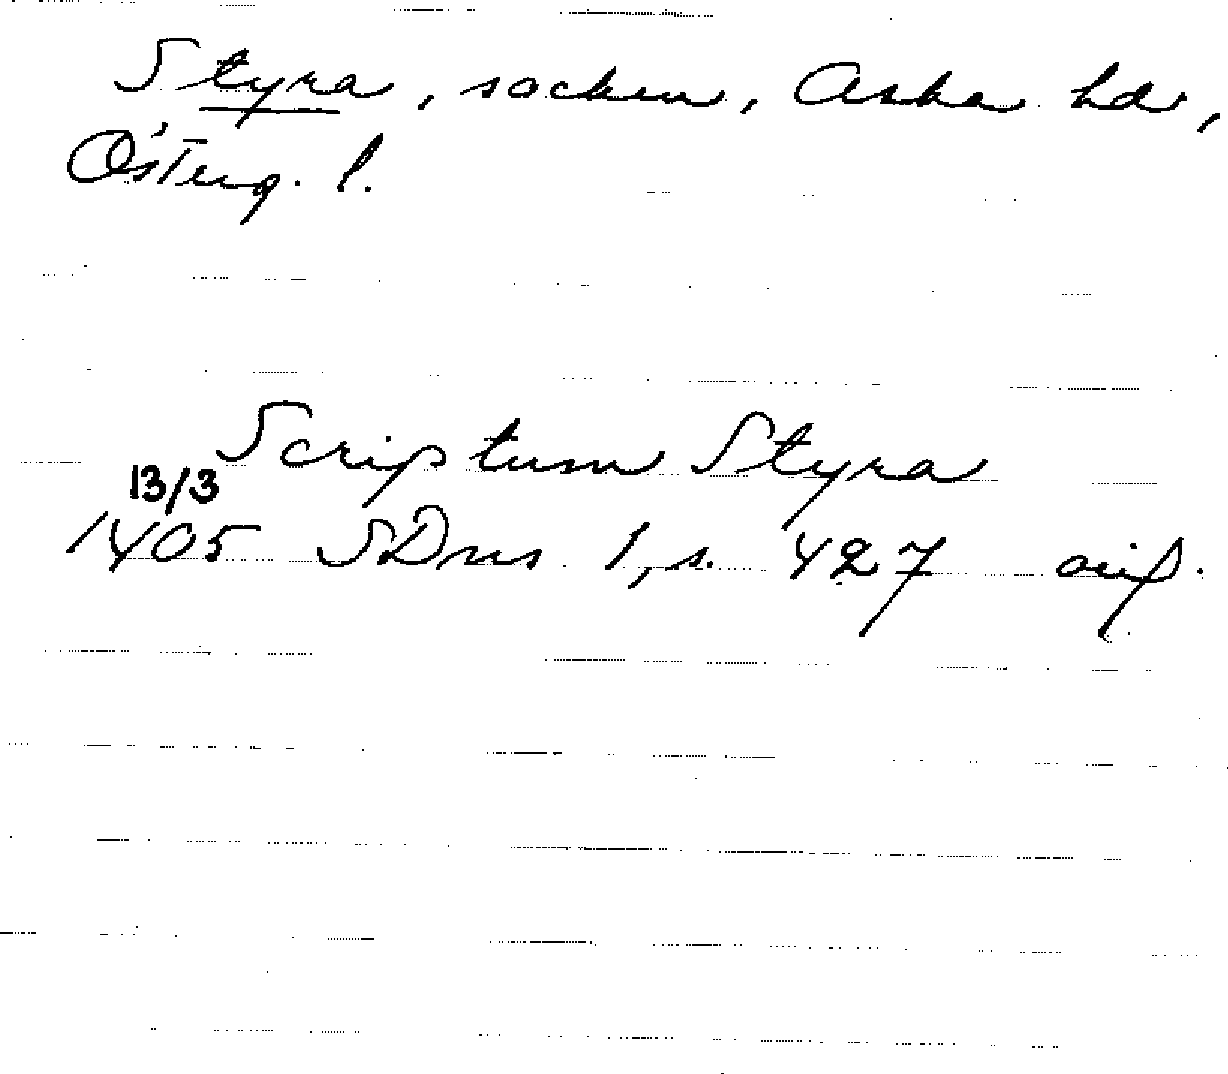 Styra, socken, Aska hd,
Österg. l.
Scriptum Styra
13/3
1405 SDns 1, s. 427 orig.